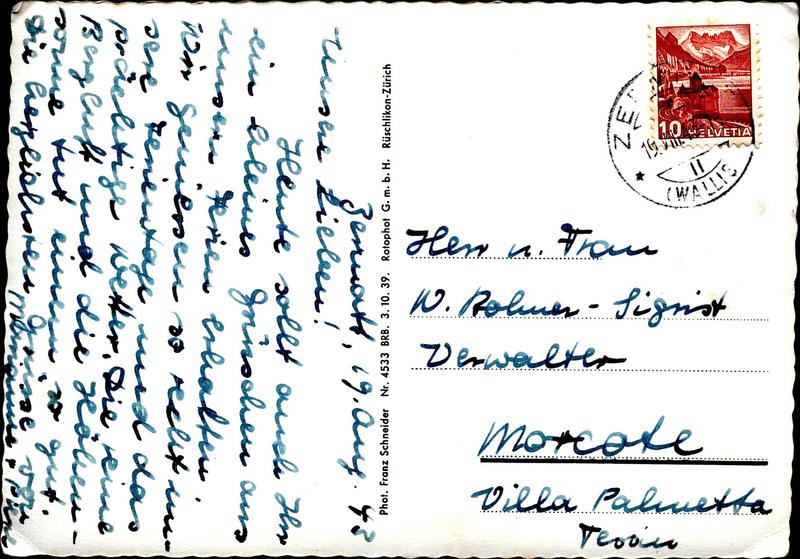 Zermatt, 19. Aug. 43
Unsere Lieben!
Heute sollt auch Ihr
ein kleines Grüschen aus
unsern Ferien erhalten.
Wir geniessen so recht un-
sere Ferientage und das
prächtige Wetter. Die reine
Bergluft und die Höhen-
sonne tut einem so gut.
Die herzlichsten Grüsse von
Phot. Franz Schneider Nr. 4533 BRB. 3. 10. 39. Rotophot G. m. b. H. Rüschlikon-Zürich
10 HELVETIA
(WALLIS)
II
Herr u. Frau
W. Rohner - Sigrist
Verwalter
Morcote
Villa Palmetta
Tessin